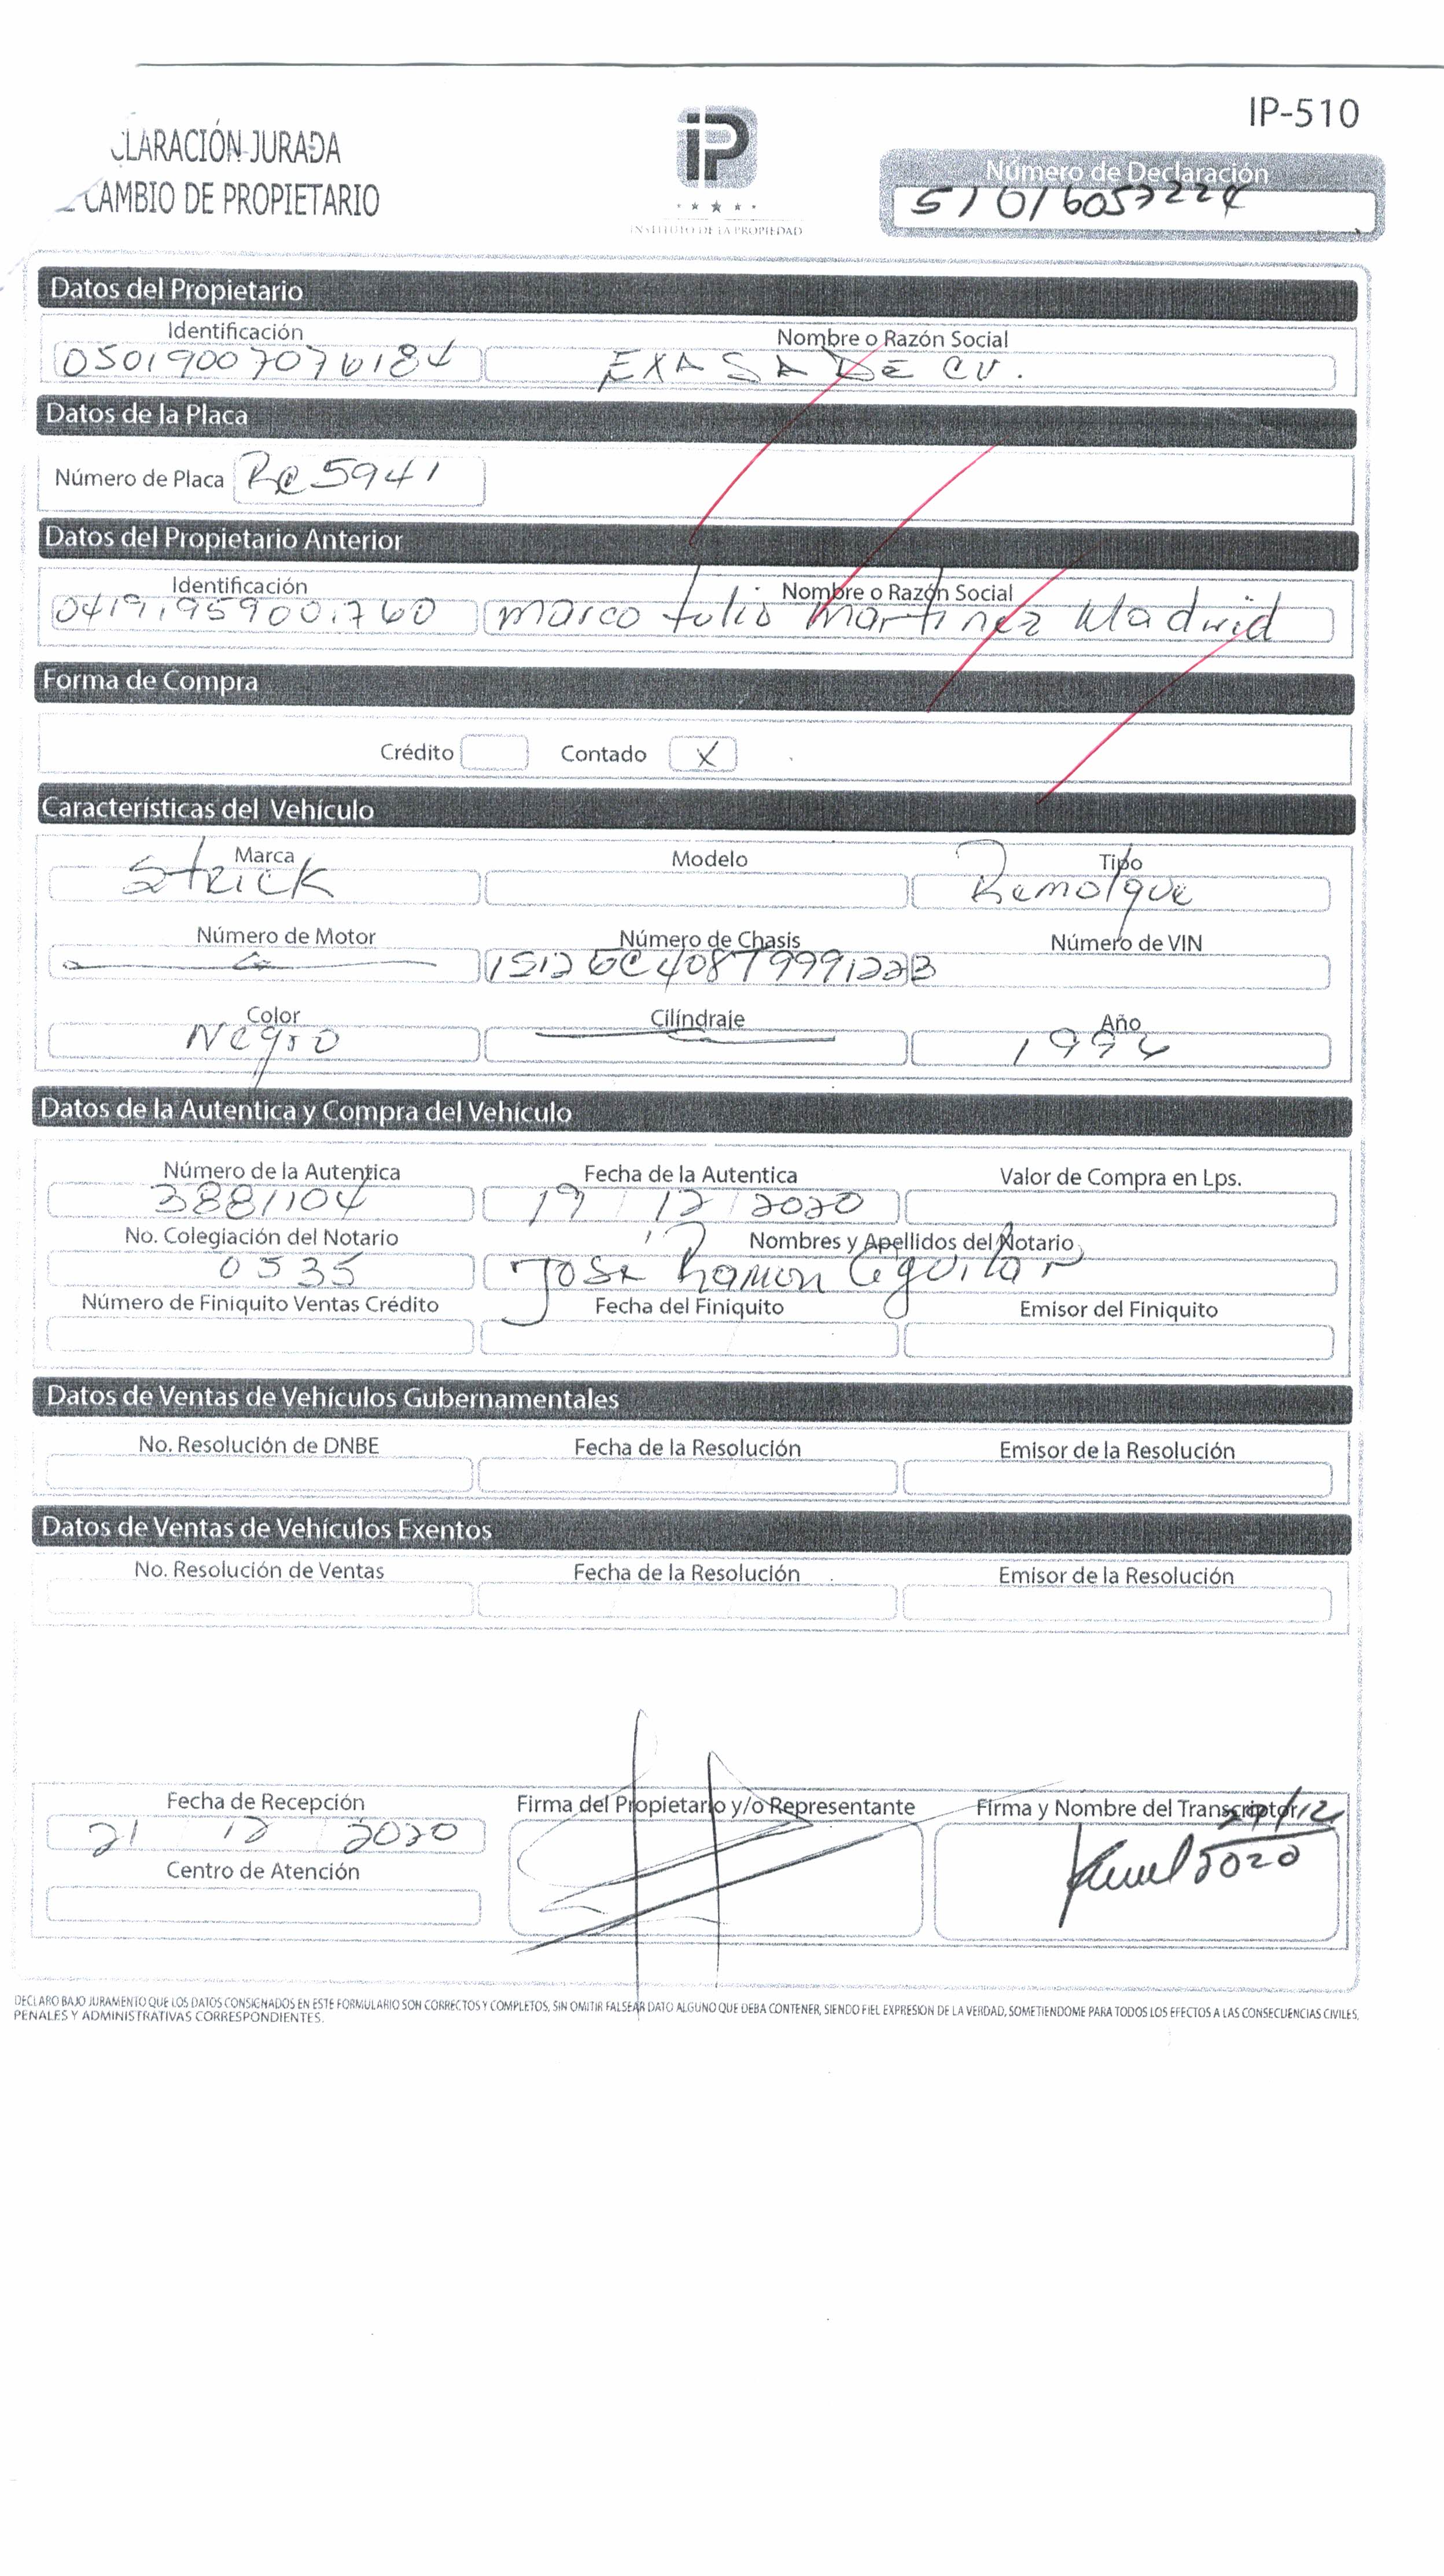 IP-510
CLARACIÓN JURADA
CAMBIO DE PROPIETARIO
iP
INSTITUTO DE LA PROPIEDAD
Número de Declaración
51016057224
Datos del Propietario
Identificación Nombre o Razón Social
05019007076184 EXA SA De CV.
Datos de la Placa
Número de Placa Re 5941
Datos del Propietario Anterior
Identificación Nombre o Razón Social
0419195900760 Marco tulio Martinez Madrid
Forma de Compra
Crédito Contado X
Características del Vehículo
Marca Modelo Tipo
Strick Remolque
Número de Motor Número de Chasis Número de VIN
Color Cilíndraje Año
Negro 1996
Datos de la Autentica y Compra del Vehículo
Número de la Autentica Fecha de la Autentica Valor de Compra en Lps.
3881104 19 12 2020
No. Colegiación del Notario Nombres y Apellidos del Notario
0535 Jose Ramon Aguilar
Número de Finiquito Ventas Crédito Fecha del Finiquito Emisor del Finiquito
Datos de Ventas de Vehículos Gubernamentales
No. Resolución de DNBE Fecha de la Resolución Emisor de la Resolución
Datos de Ventas de Vehículos Exentos
No. Resolución de Ventas Fecha de la Resolución Emisor de la Resolución
Fecha de Recepción Firma del Propietario y/o Representante Firma y Nombre del Transcriptor
21 12 2020
2020
Centro de Atención
DECLARO BAJO JURAMENTO QUE LOS DATOS CONSIGNADOS EN ESTE FORMULARIO SON CORRECTOS Y COMPLETOS, SIN OMITIR FALSEAR DATO ALGUNO QUE DEBA CONTENER, SIENDO FIEL EXPRESION DE LA VERDAD, SOMETIENDOME PARA TODOS LOS EFECTOS A LAS CONSECUENCIAS CIVILES,
PENALES Y ADMINISTRATIVAS CORRESPONDIENTES.